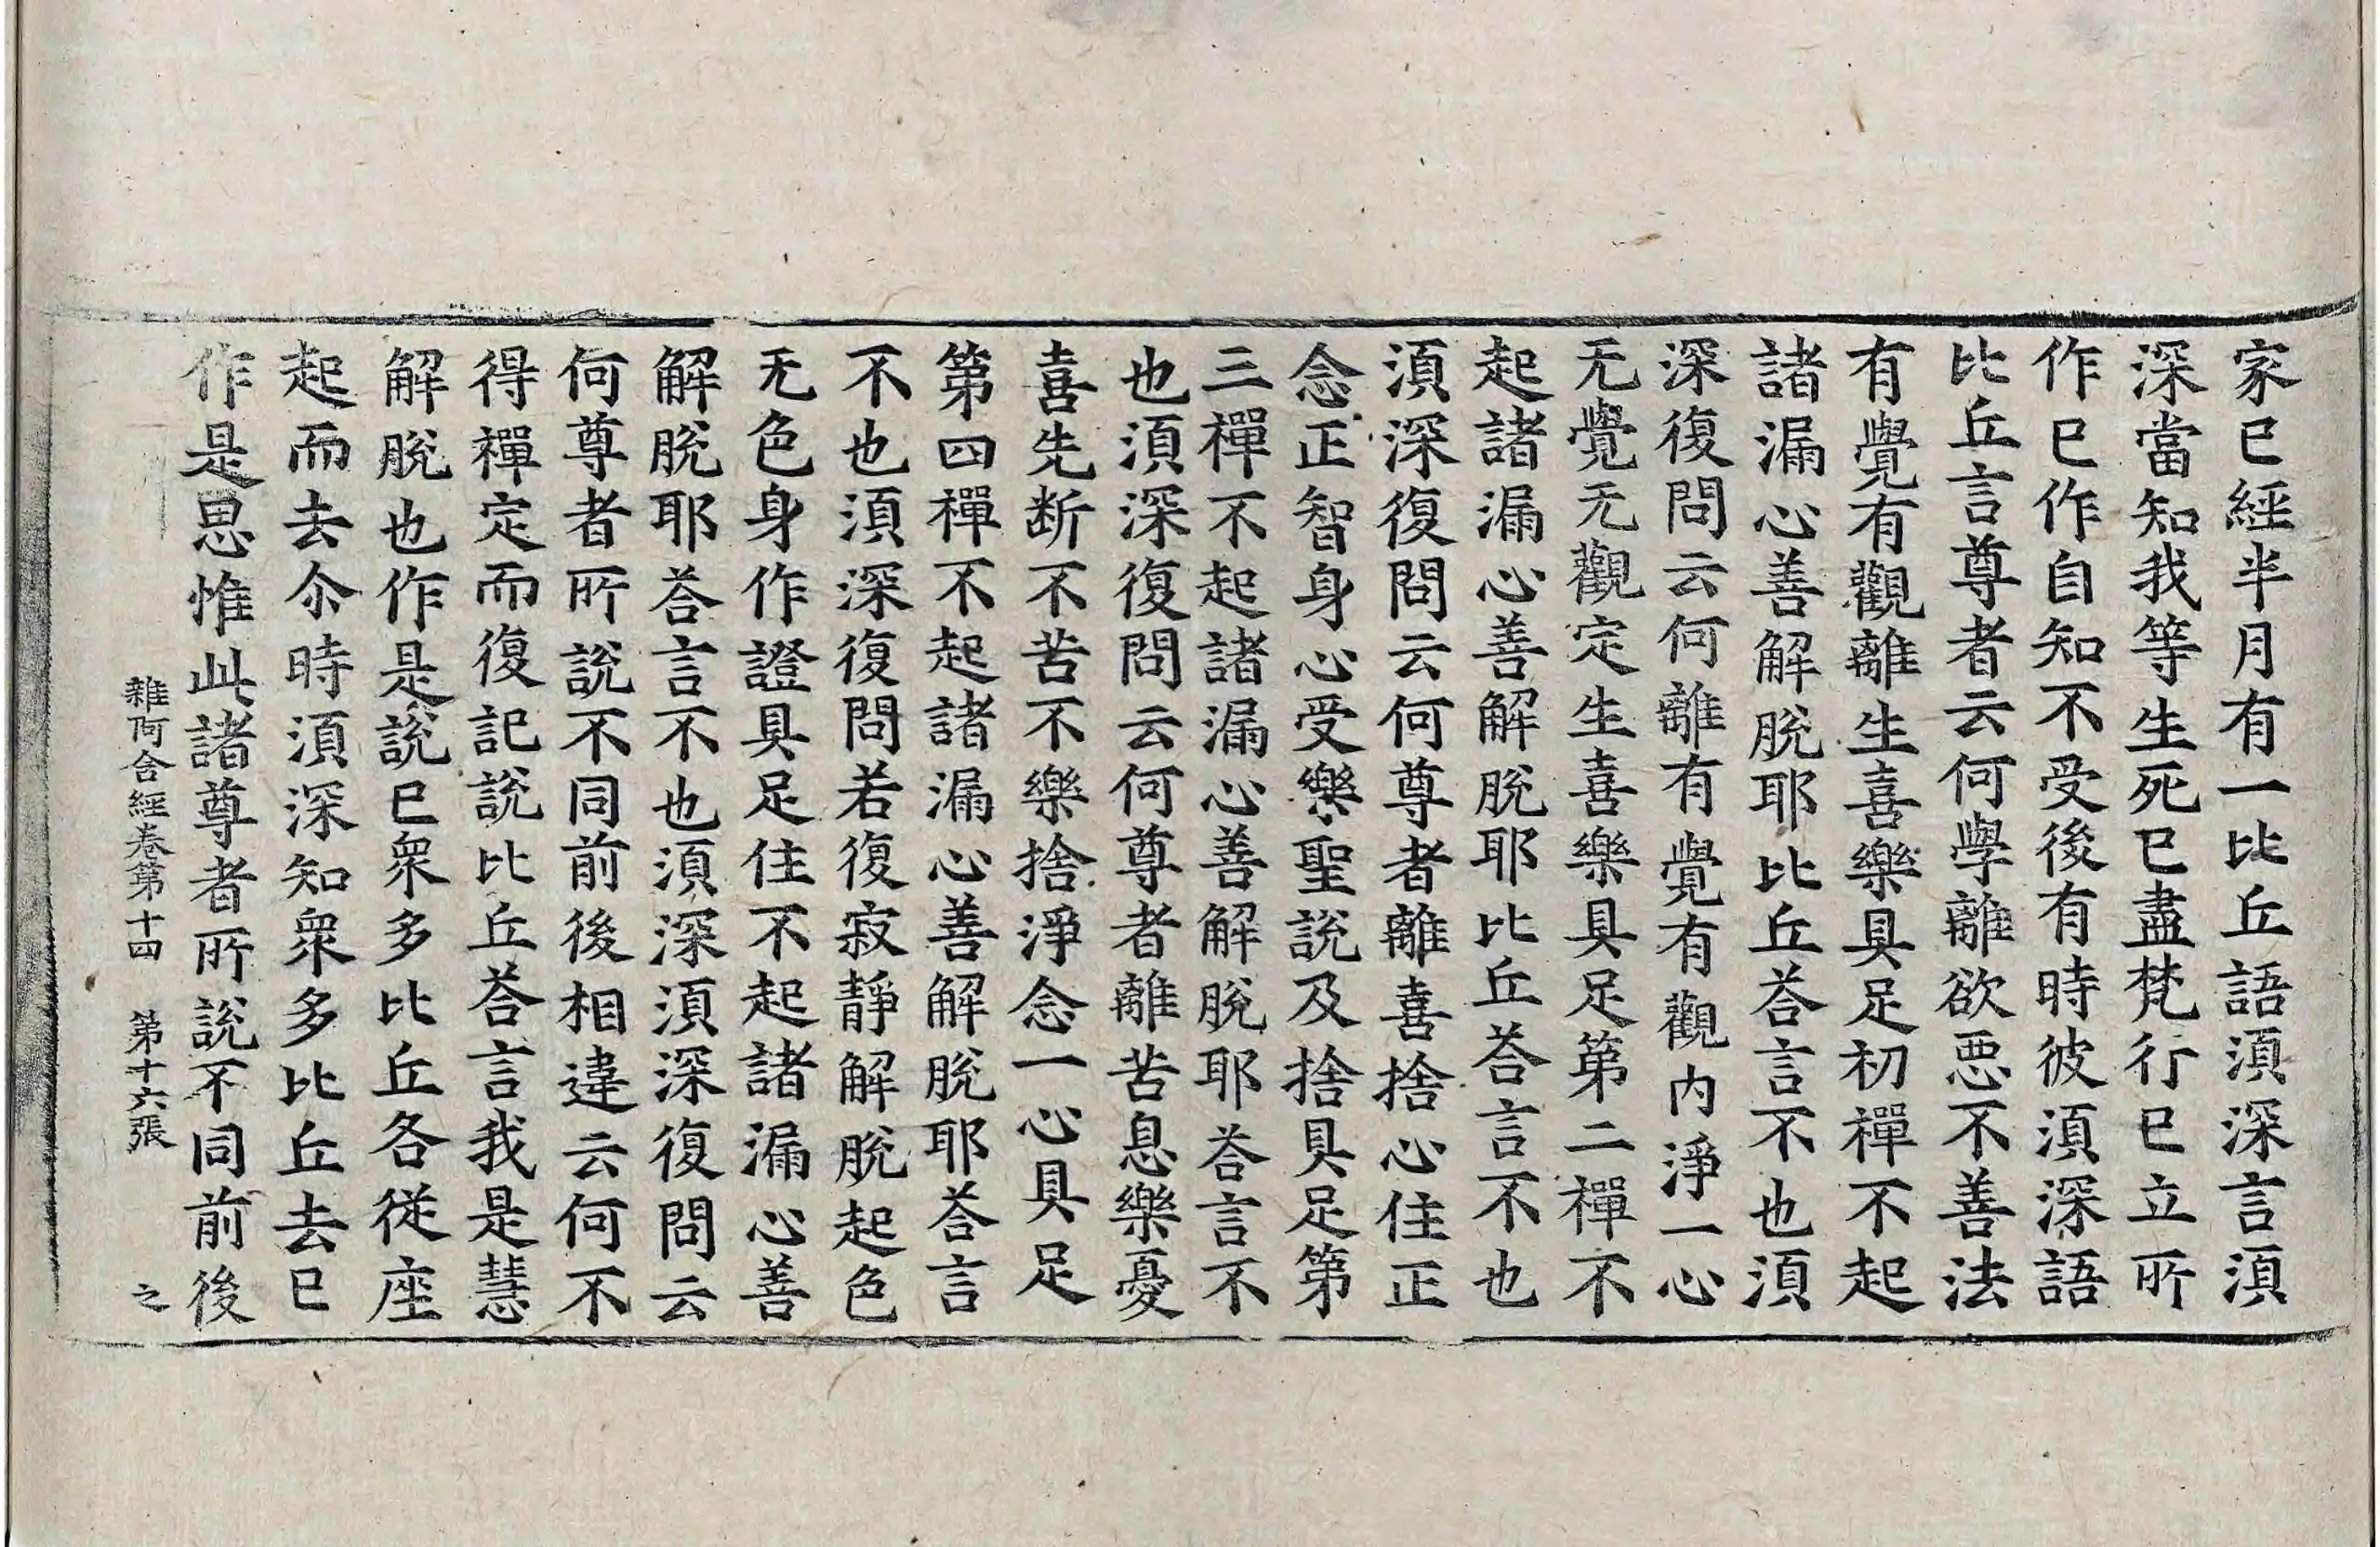 家已經半月有一比丘語湏深言湏
深當知我等生死已盡梵行已立所
作已作自知不受後有時彼湏深語
比丘言尊者云何學離欲惡不善法
有覺有觀離生喜樂具足初禪不起
諸漏心善解脫耶比丘荅言不也湏
深復問云何離有覺有觀內淨一心
无覺无觀定生喜樂具足第二禪不
起諸漏心善解脫耶比丘荅言不也
湏深復問云何尊者離喜捨心住正
念正智身心受樂聖說及捨具足第
三禪不起諸漏心善解脫耶荅言不
也湏深復問云何尊者離苦息樂憂
喜先斷不苦不樂捨淨念一心具足
第四禪不起諸漏心善解脫耶荅言
不也湏深復問若復寂靜解脫起色
无色身作證具足住不起諸漏心善
解脫耶荅言不也湏深湏深復問云
何尊者所說不同前後相違云何不
得禪定而復記說比丘荅言我是慧
解脫也作是說已衆多比丘各從座
起而去尒時湏深知衆多比丘去已
作是思惟此諸尊者所說不同前後
雜阿含經卷第十四 第十六張 之